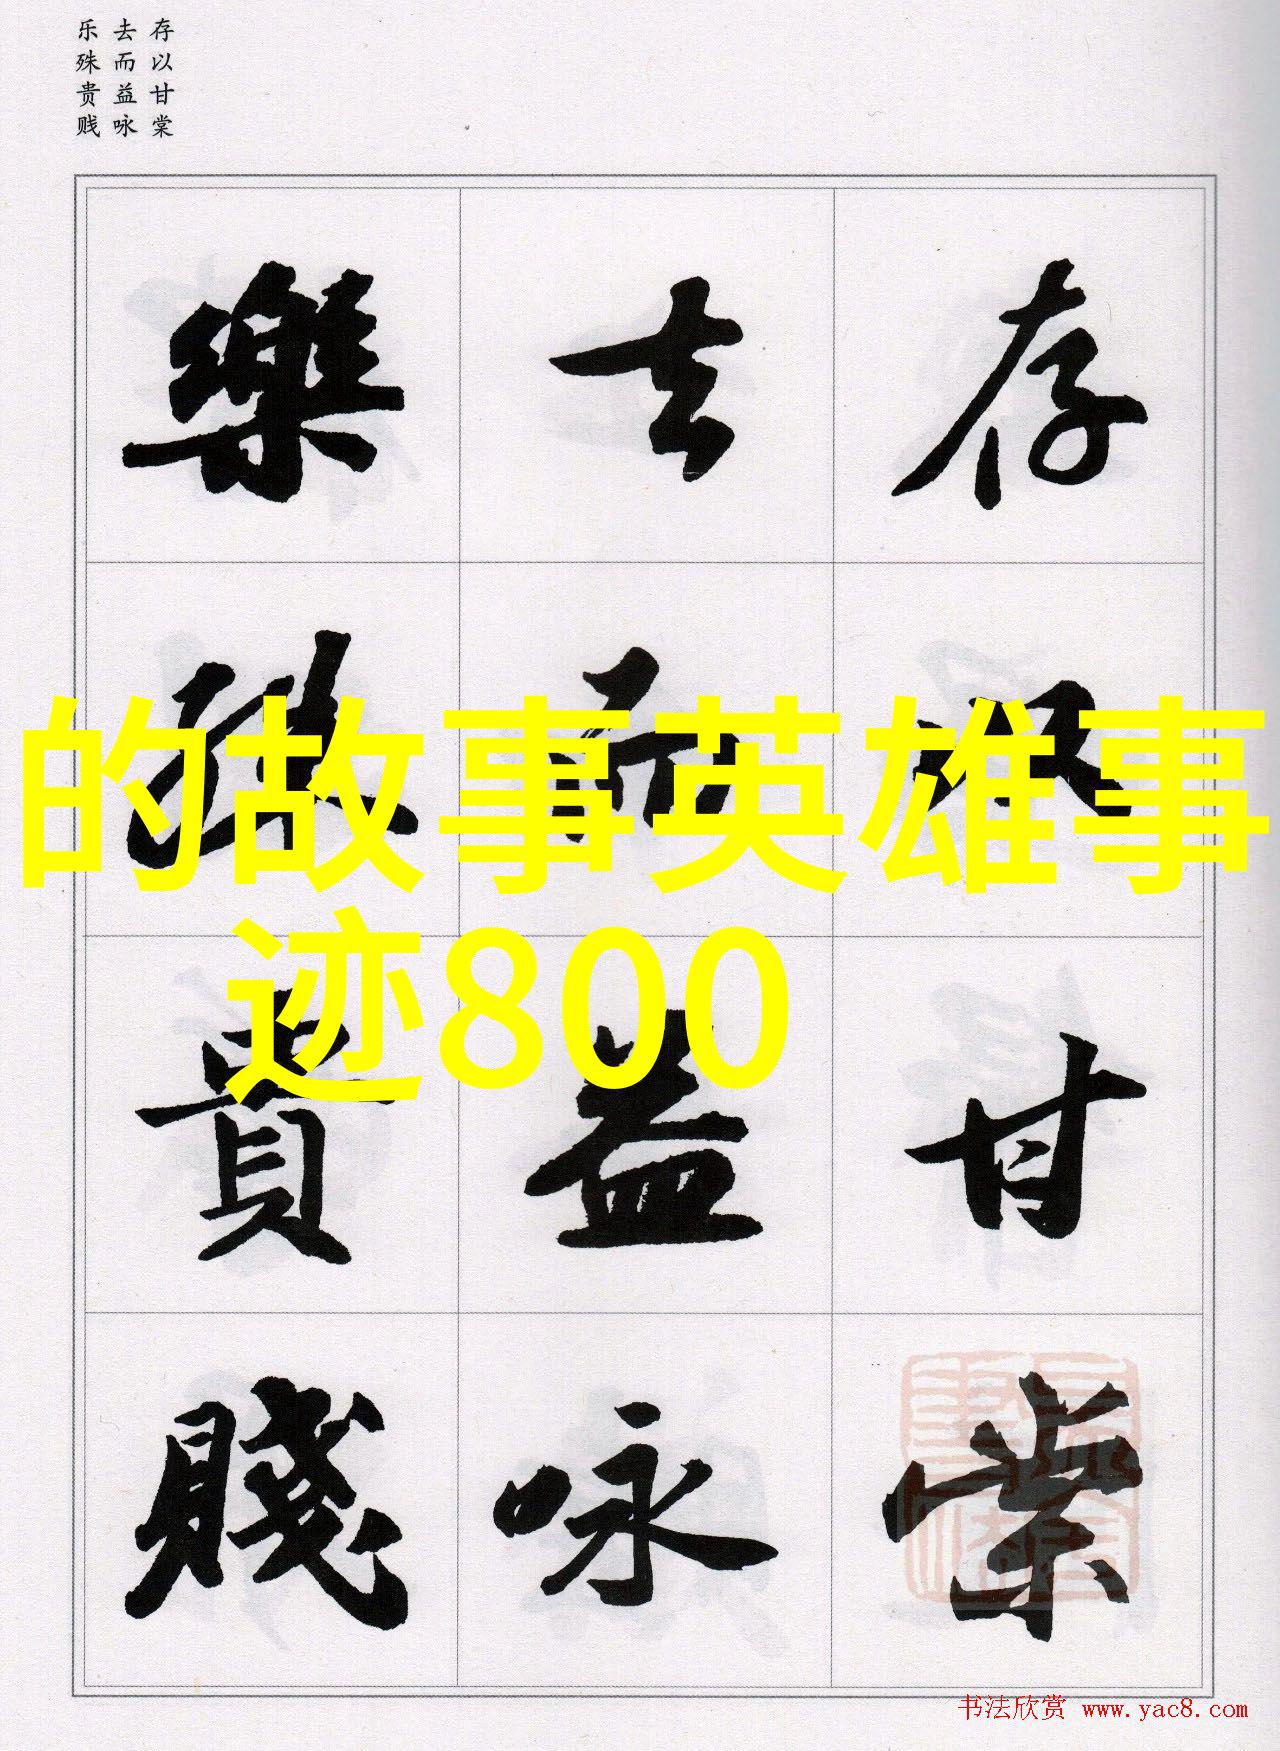 存以甘棠
去而益咏
乐殊贵贱
存以甘棠
去而益咏
樂殊貴賤
的故事英雄事
迹800
书法欣赏 www.yac8.com